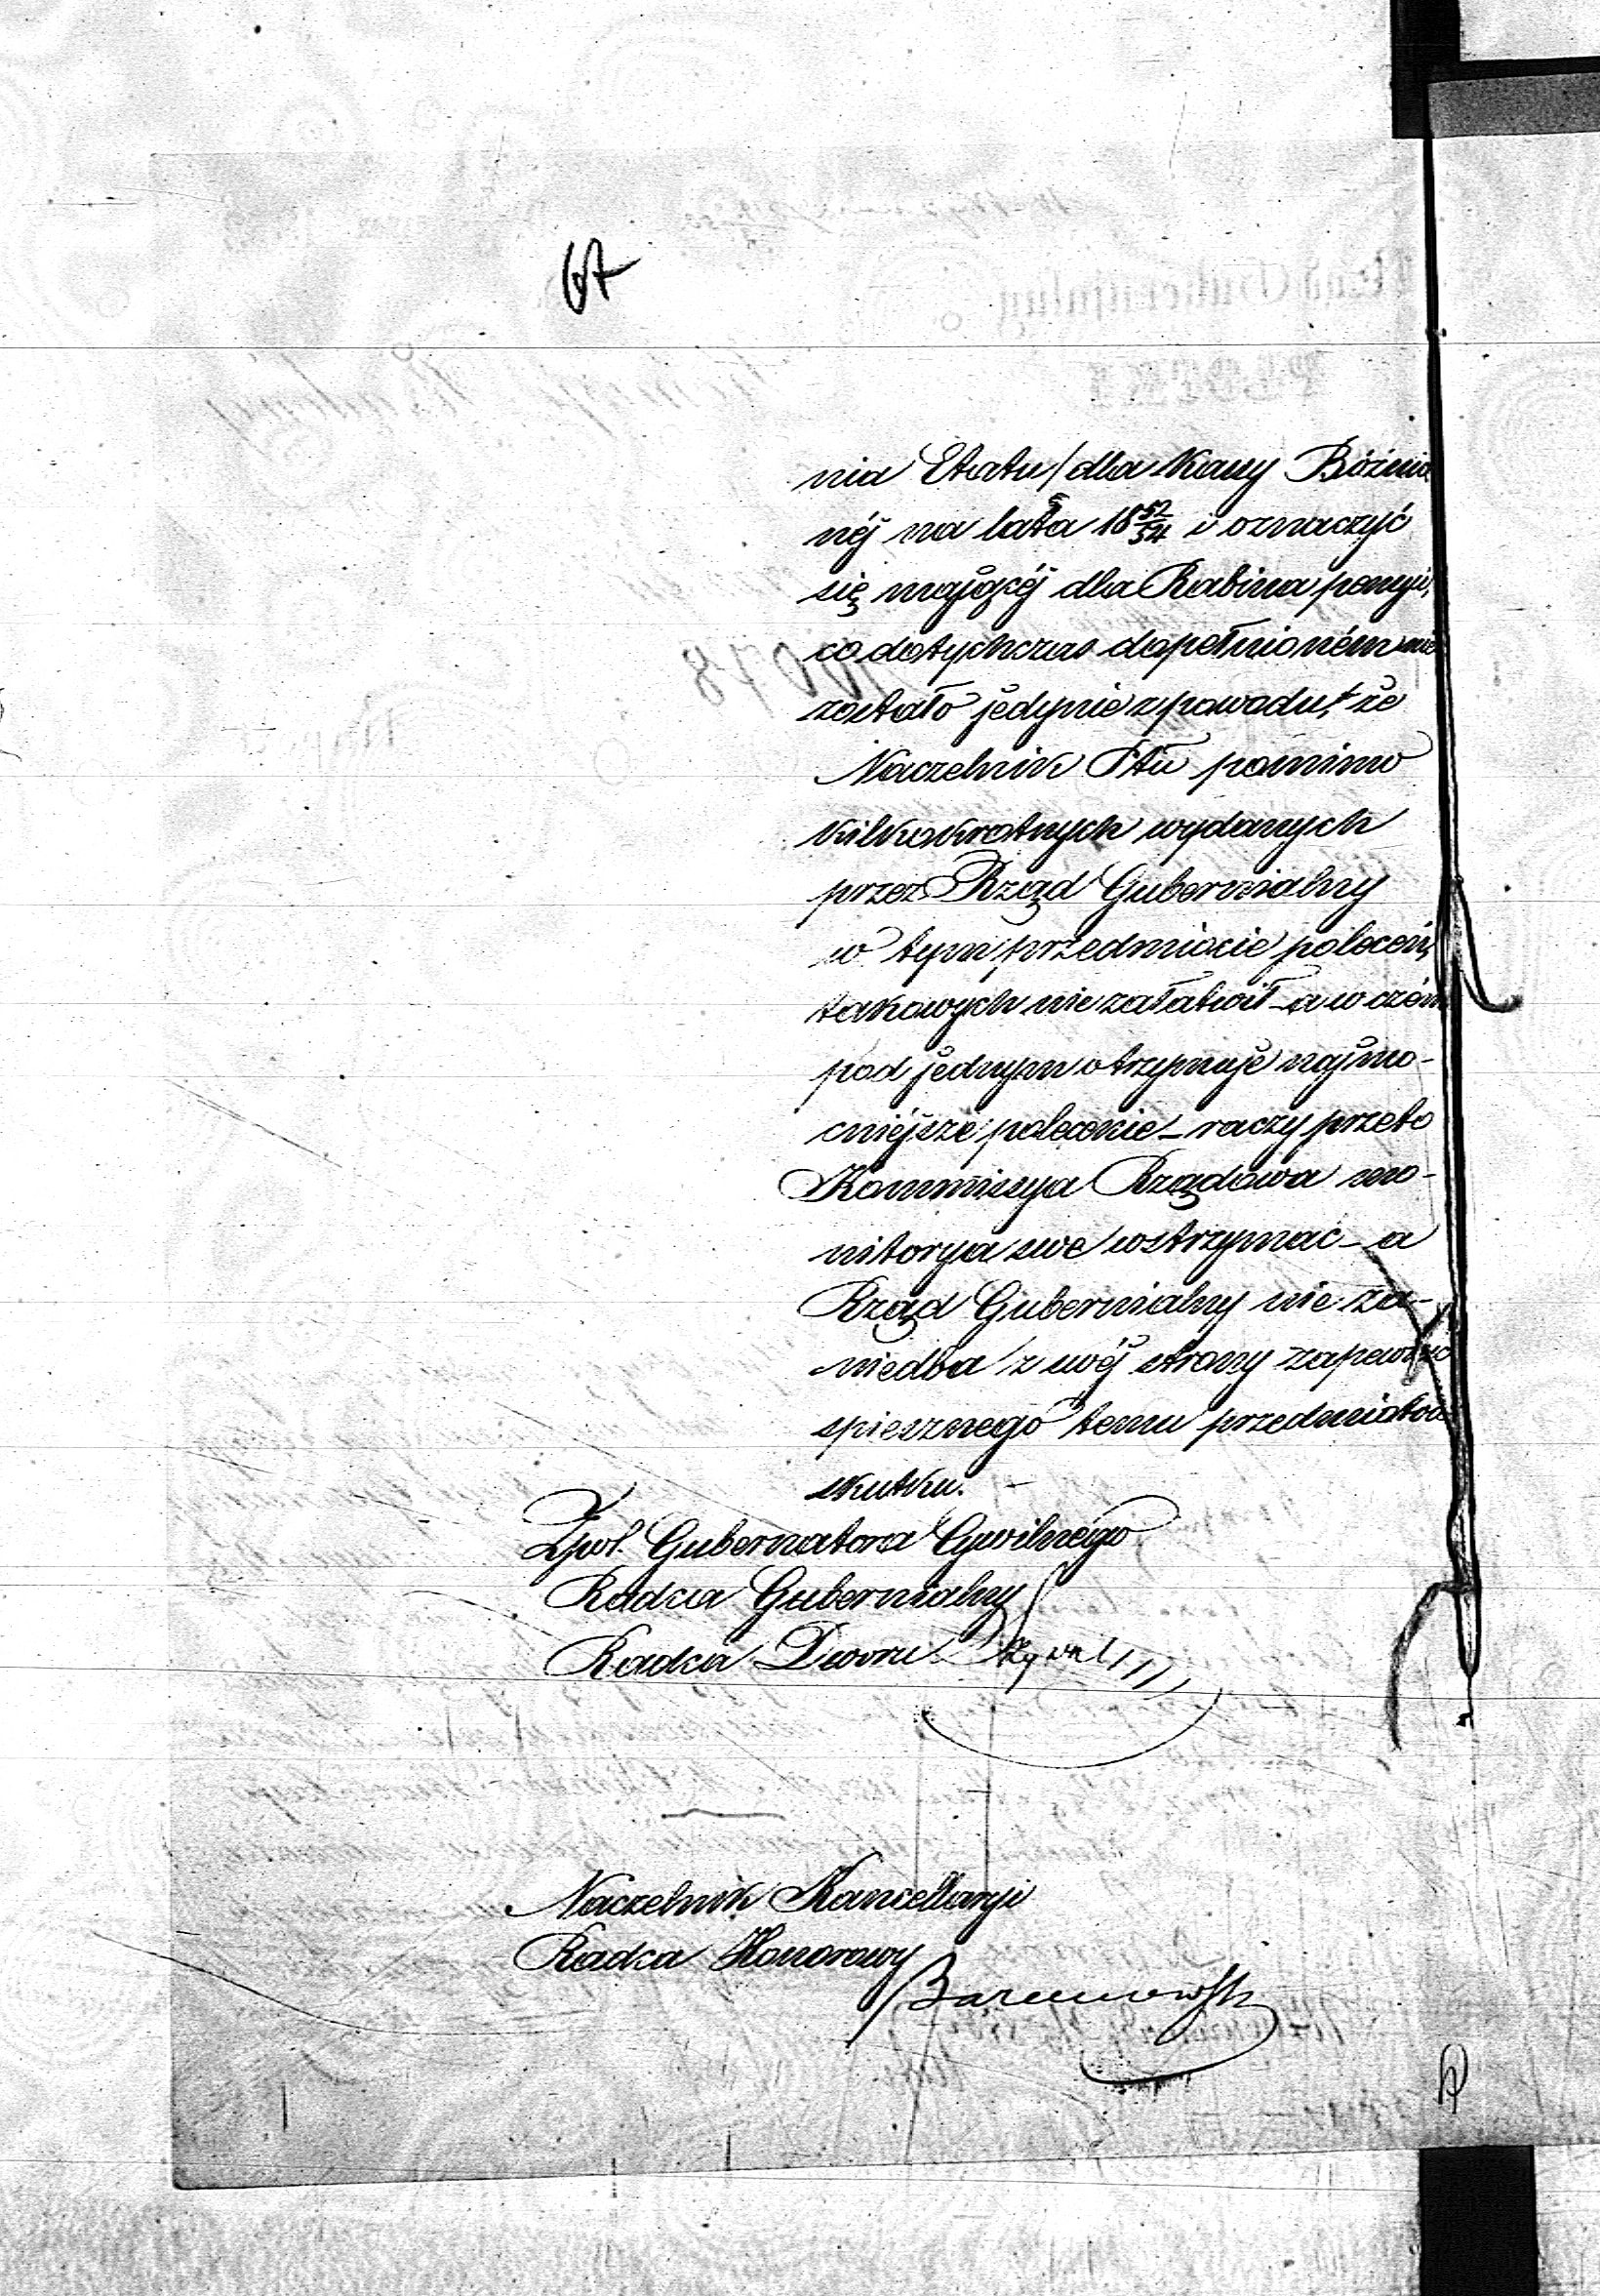 67
nia Etatu dla Kassy Bóżnicz
néj na lata 18 52/54 i oznaczyć
się mającéj dla Rabina pensyi,
co dotychczas dopełnioném nie
zostało jedynie z powodu, że
Naczelnik Ptu pomimo
kilkakrotnych wydanych
przez Rząd Gubernialny
w tym przedmiocie poleceń,
takowych nie załatwił – a w czém
pod jednym otrzymuje najmo-
cniejsze polecenie – raczy przeto
Kommissya Rządowa mo-
nitorya swe wstrzymać – a
Rząd Gubernialny nie za-
niedba z swéj strony zapewnić
spiesznego temu przedmiotowi
skutku. –
Gubernatora Cywilnego
Radca Gubernialny
Radca Dworu
Naczelnik Kancellaryi
Radca Honorowy